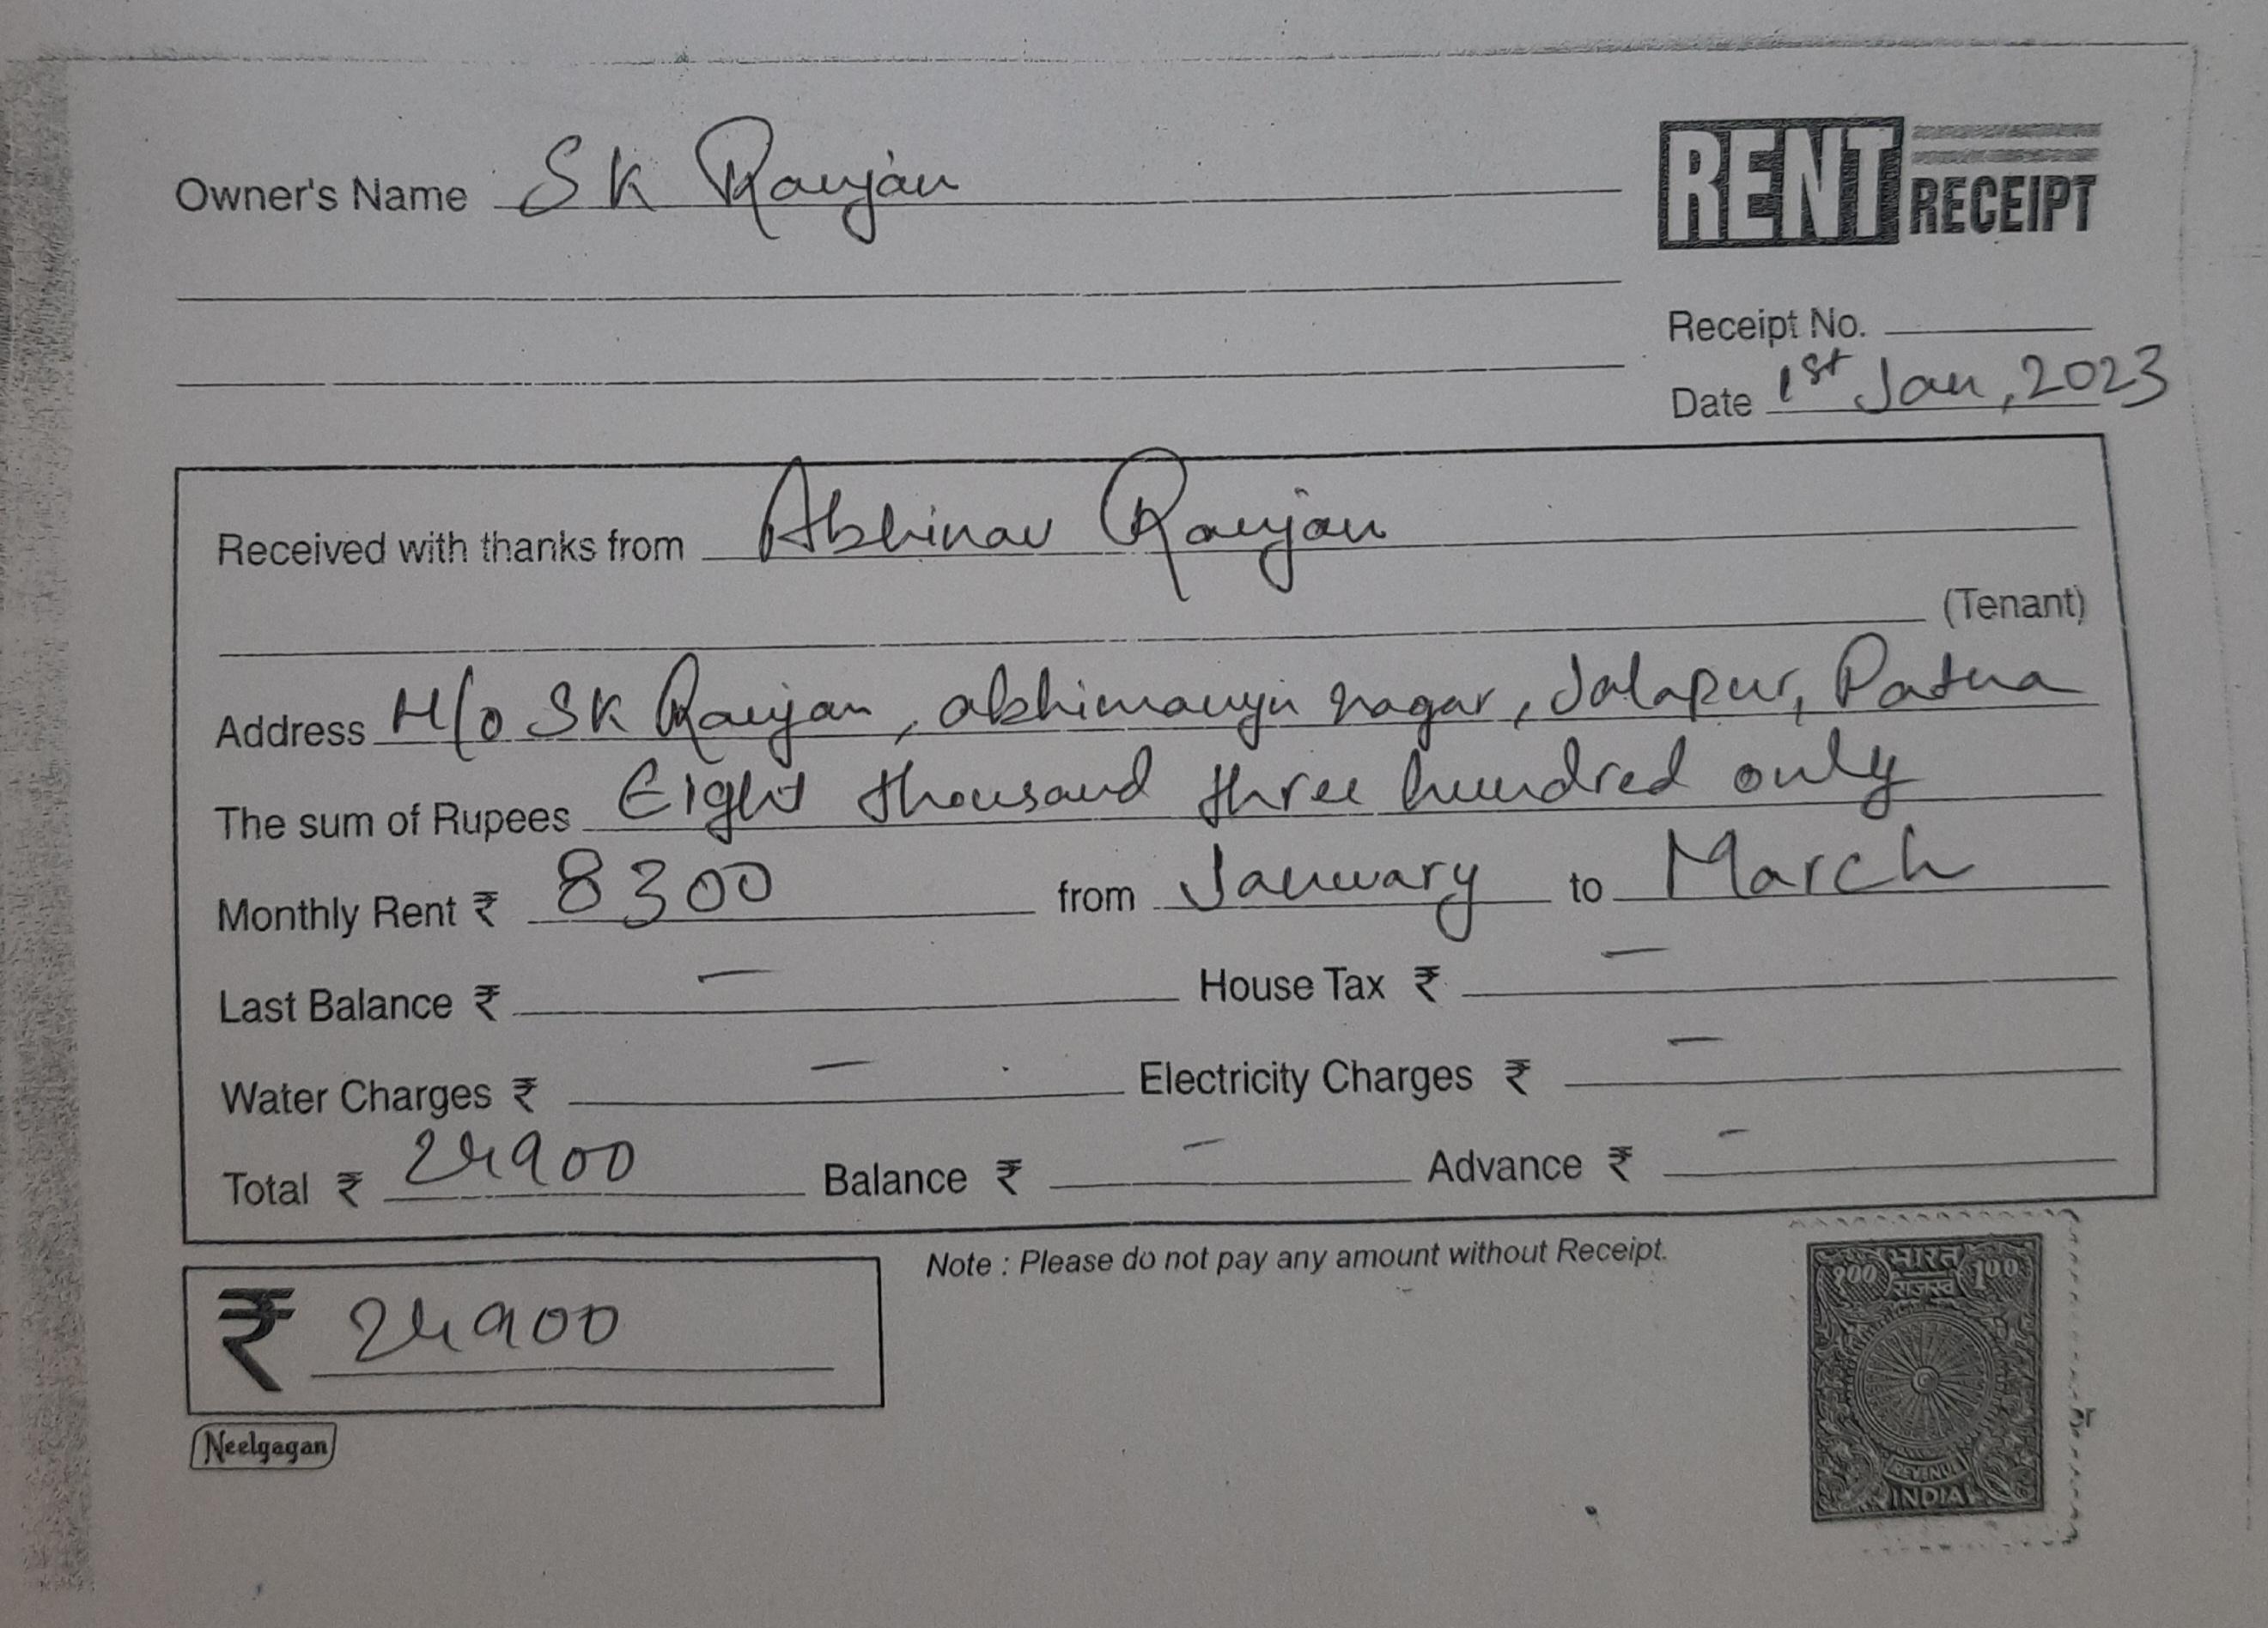 Owner's Name SK Ranjan
RENT RECEIPT
Receipt No.
Date 1st Jan, 2023
Received with thanks from Abhinav Ranjan
(Tenant)
Address H/o SK Ranjan, abhimanyu nagar, Jalapur, Patna
The sum of Rupees Eight thousand three hundred only
Monthly Rent ₹ 8300 from January to March
Last Balance ₹ — House Tax ₹ —
Water Charges ₹ — Electricity Charges ₹ —
Total ₹ 24900 Balance ₹ — Advance ₹ —
Note : Please do not pay any amount without Receipt.
₹ 24900
Neelgagan
१00 भारत 100
राजस्व
REVENUE
INDIA